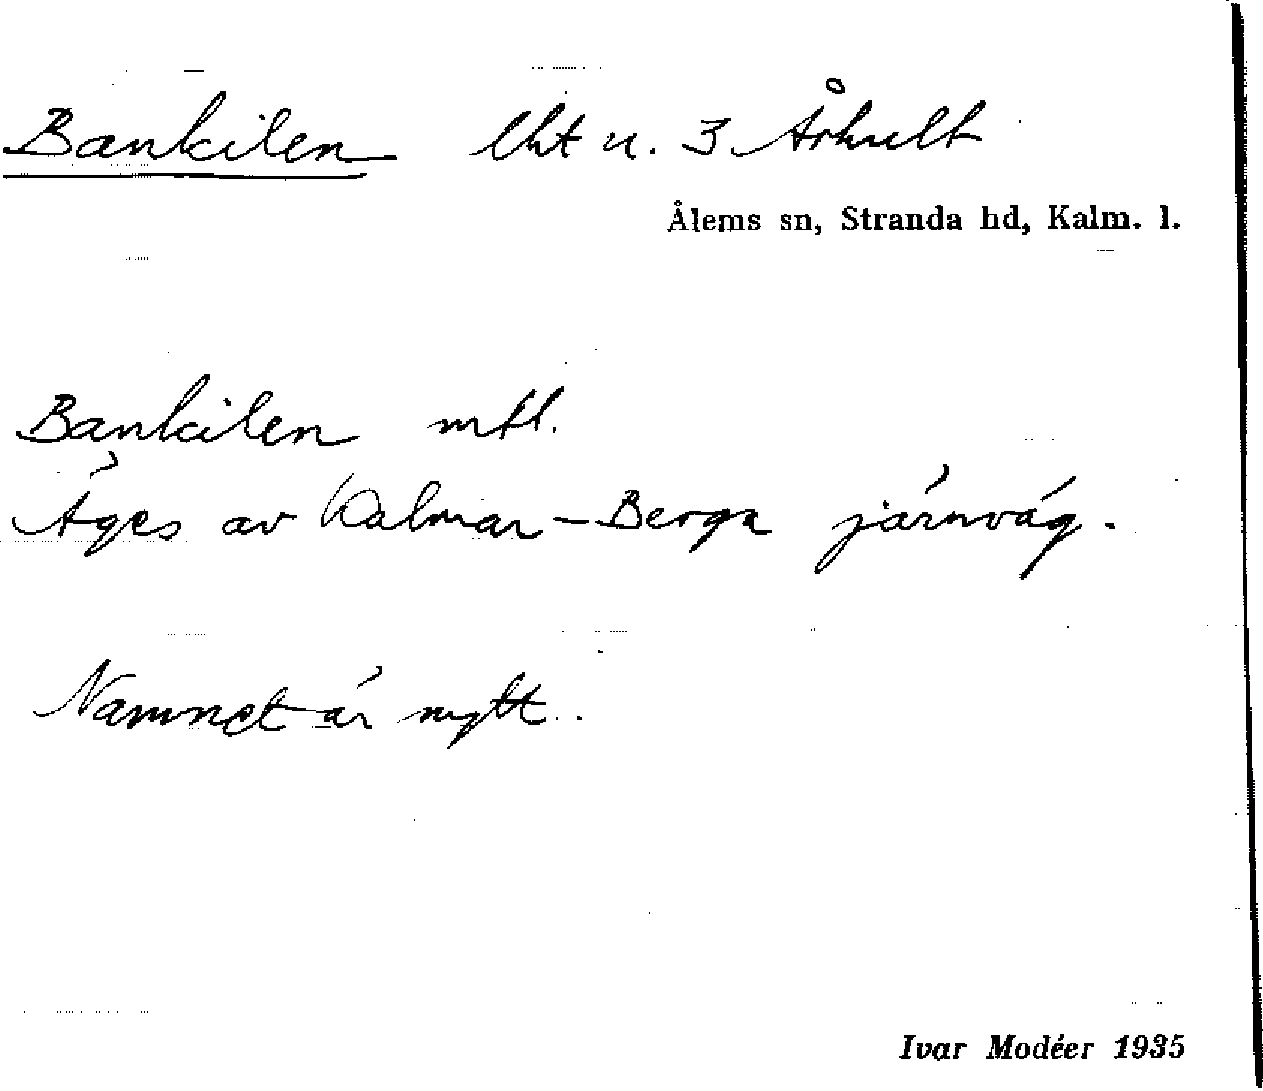 Bankilen lht u. 3 Århult
Ålems sn, Stranda hd, Kalm. l.
Bankilen mtl.
Äges av Kalmar-Berga järnväg.
Namnet är nytt.
Ivar Modéer 1935